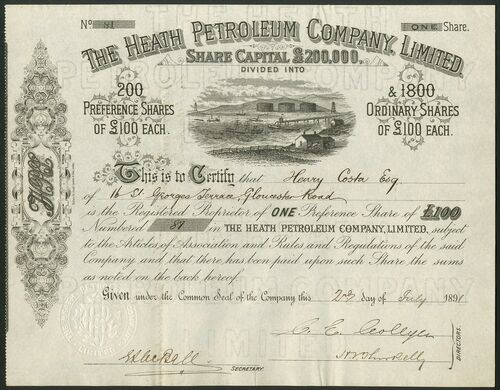 No 81 ONE Share.
THE HEATH PETROLEUM COMPANY, LIMITED.
SHARE CAPITAL £200,000,
DIVIDED INTO
200 & 1800
PREFERENCE SHARES ORDINARY SHARES
OF £100 EACH. OF £100 EACH.
This is to Certify that Henry Costa Esq
of 16 St Georges Terrace, Gloucester Road
is the Registered Proprietor of ONE Preference Share of £100
Numbered 81 in THE HEATH PETROLEUM COMPANY, LIMITED, subject
to the Articles of Association and Rules and Regulations of the said
Company and that there has been paid upon such Share the sums
as noted on the back hereof.
Given under the Common Seal of the Company this 2nd day of July 1891
DIRECTORS.
SECRETARY.